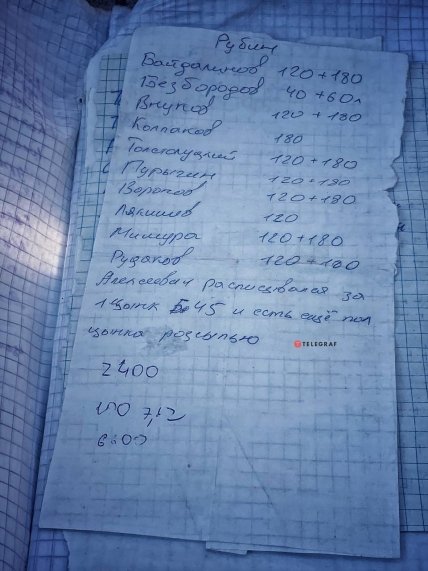 Рубин
Байдалинов 120+180
Безбородов 40+60л
Внуков 120+180
Колпаков 180
Толстолуцкий 120+180
Пурыгин 120+180
Воропов 120+180
Лякишев 120
Мишура 120+180
Рудаков 120+180
Алексеевич расписывался за
1 цынк 5,45 и есть ещё пол
цынка розсыпью
TELEGRAF
2400
7,62